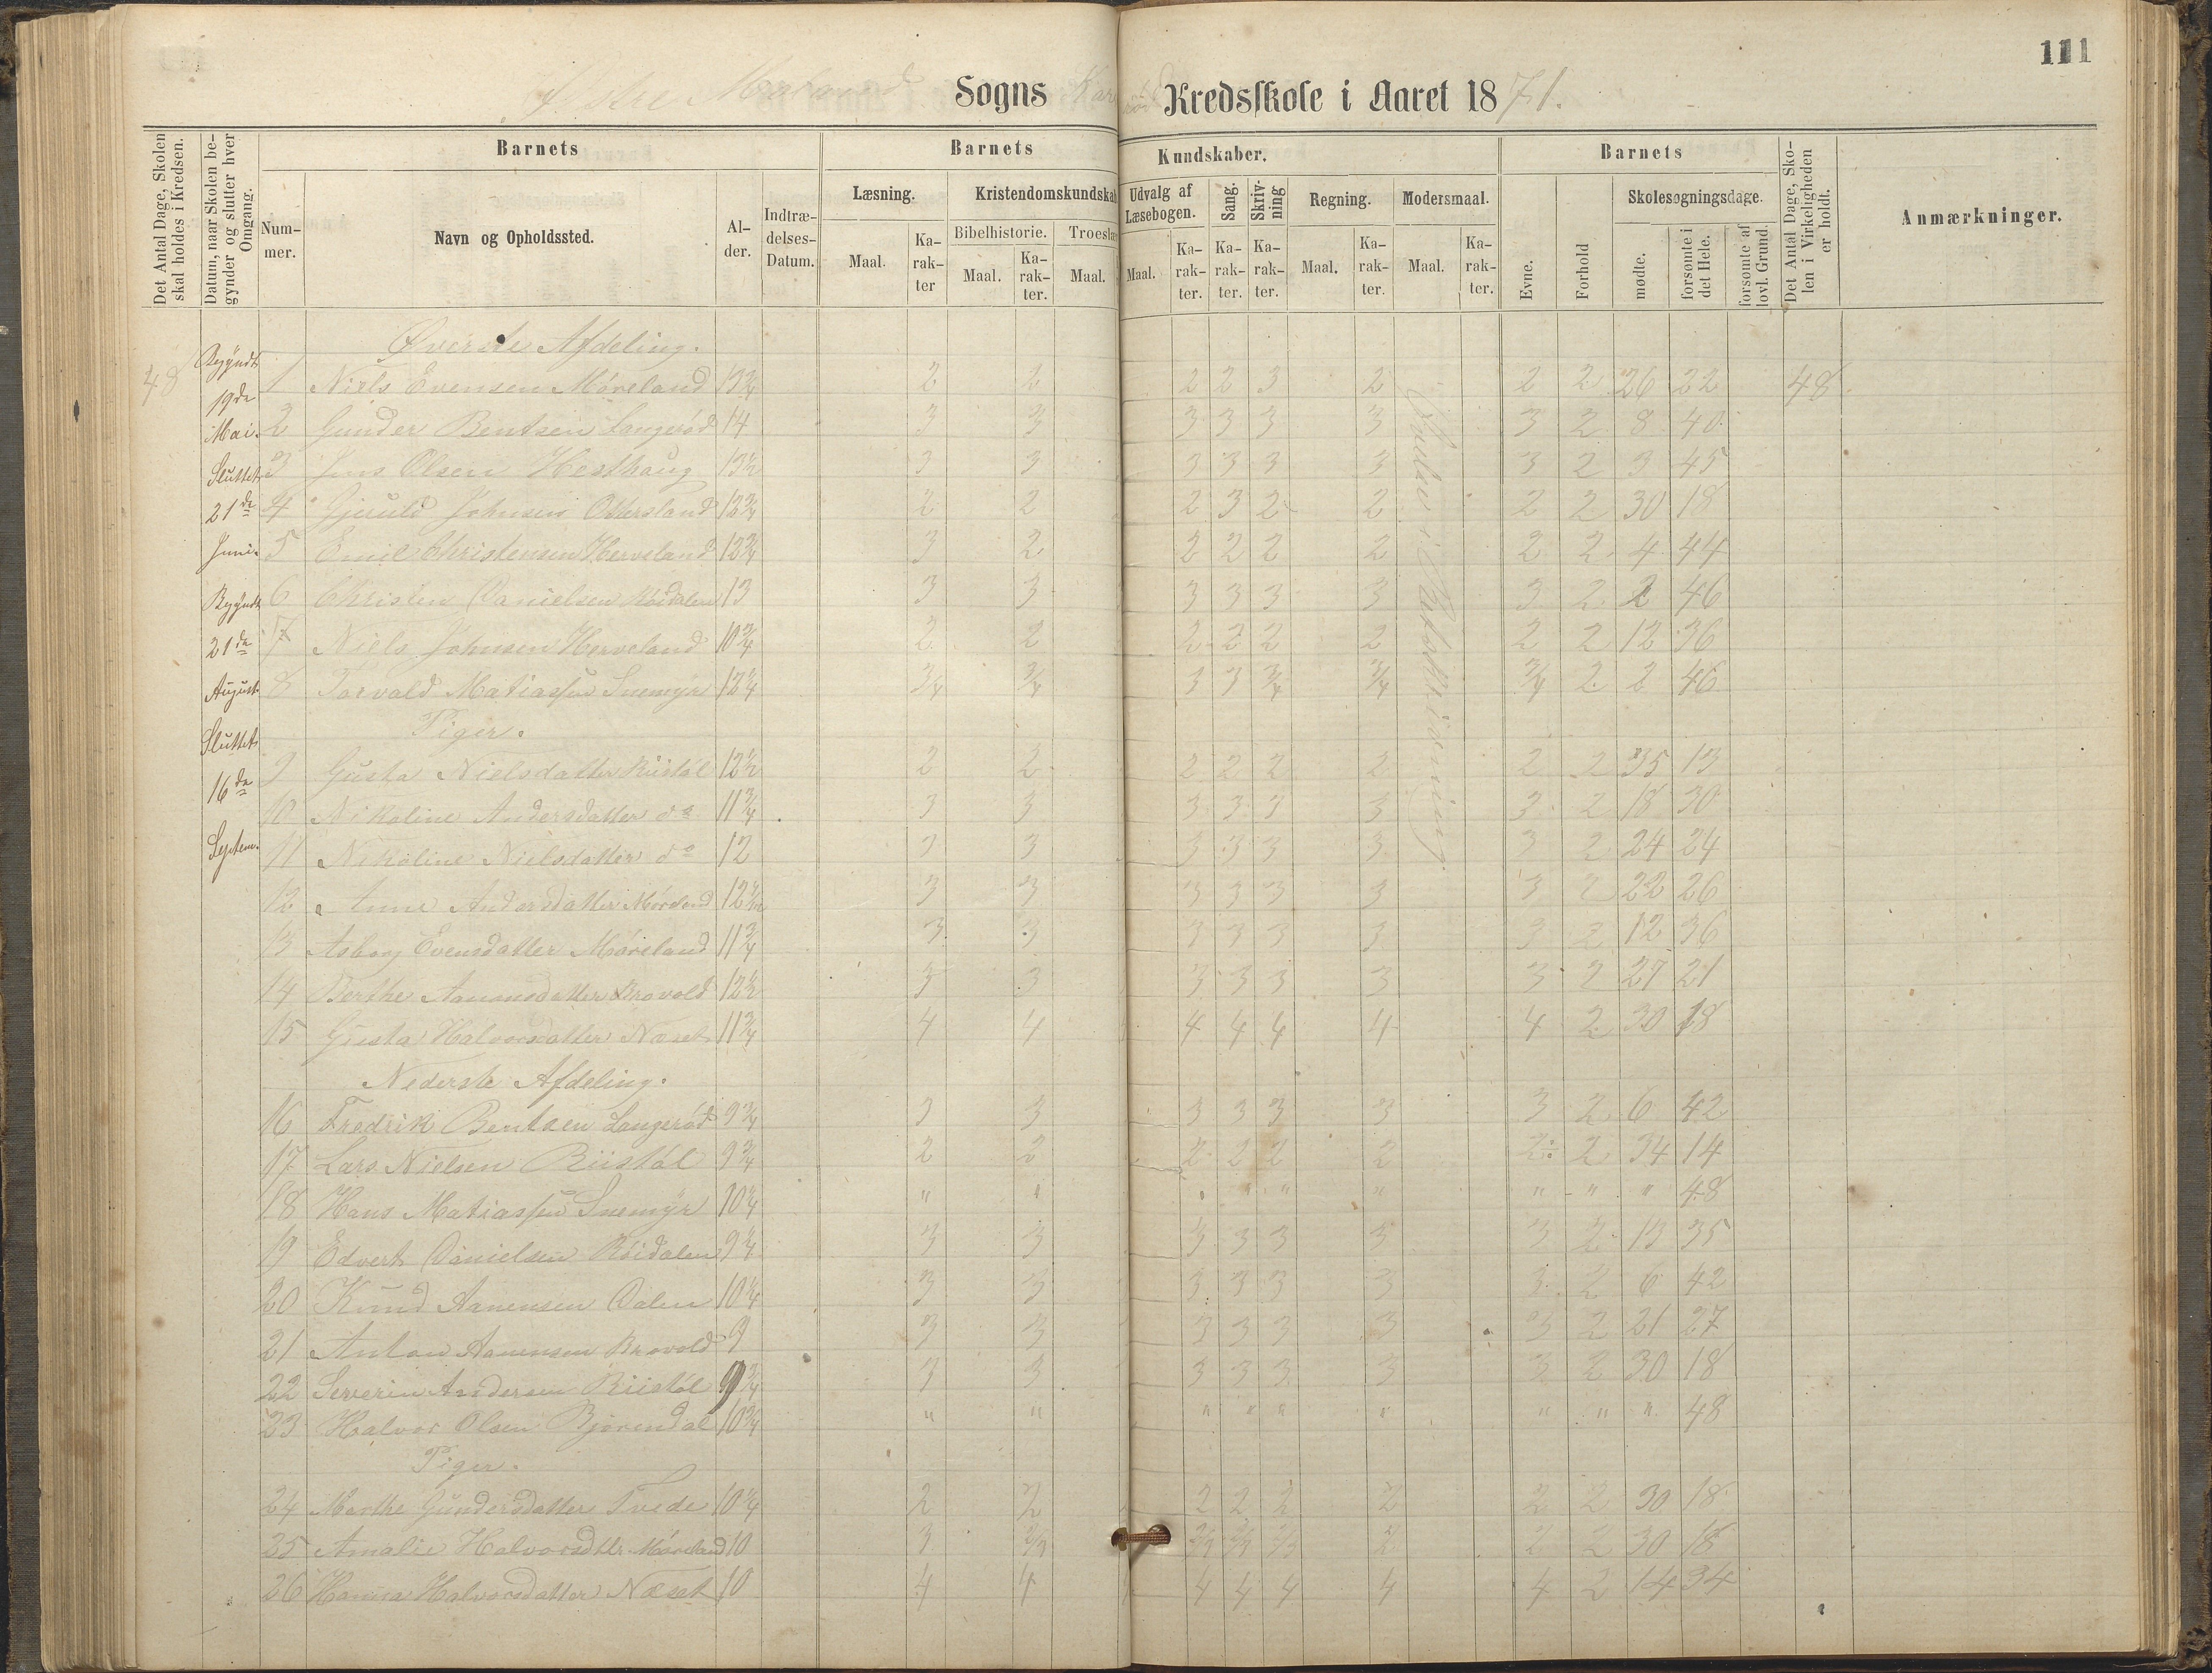 111
Østre Moland Sogns Kredsskole i Aaret 1871.
Det Antal Dage, Skolen skal holdes i Kredsen.
Datum, naar Skolen begynder og slutter hver Omgang.
Barnets
Barnets Kundskaber.
Barnets
Nummer.
Navn og Opholdssted.
Alder.
Indtrædelses-Datum.
Læsning.
Kristendomskundskab
Udvalg af Læsebogen.
Sang.
Skrivning
Regning.
Modersmaal.
Evne.
Forhold
Skolesøgningsdage.
Det Antal Dage, Skolen i Virkeligheden er holdt.
Anmærkninger.
Bibelhistorie.
Troeslær
Maal. Karakter
Maal. Karakter.
Maal.
Maal. Karakter. Karakter. Karakter.
Maal. Karakter.
Maal. Karakter.
mødte.
forsømte i det Hele.
forsømte af lovl. Grund.
Begyndt 19de Mai.
Sluttet 21de Juni.
Begyndt 21de August
Sluttet 16de Septem.
Øverste Afdeling.
48 1 Niels Evensen Møreland 13¾ 2 2 2 2 3 2 2 2 26 22 48
2 Gunder Bentsen Langerød 14 3 3 3 3 3 3 3 2 8 40
3 Jens Olsen Hesthaug 13½ 3 3 3 3 3 3 3 2 3 45
4 Gjeruld Johnsen Ottersland 12¾ 2 2 2 3 2 2 2 2 30 18
5 Emil Christensen Herveland 12¾ 3 2 2 2 2 2 2 2 4 44
6 Christen Danielsen Røidalen 13 3 3 3 3 3 3 3 2 2 46
7 Niels Johnsen Herveland 10¾ 2 2 2 2 2 2 2 2 12 36
8 Torvald Matiassen Snemyr 12¼ 3/4 3/4 3 3 3/4 3/4 3/4 2 2 46
Piger.
9 Gusta Nielsdatter Riistøl 12½ 2 2 2 2 2 2 2 2 35 13
10 Nikoline Andersdatter do 11¾ 3 3 3 3 3 3 3 2 18 30
11 Nikoline Nielsdatter do 12 3 3 3 3 3 3 3 2 24 24
12 Anne Andersdatter Møreland 12½ 3 3 3 3 3 3 3 2 22 26
13 Asborg Evensdatter Møreland 11¾ 3 3 3 3 3 3 3 2 12 36
14 Berthe Aanonsdatter Brovold 12½ 3 3 3 3 3 3 3 2 27 21
15 Gusta Halvorsdatter Næset 11¾ 4 4 4 4 4 4 4 2 30 18
Nederste Afdeling.
16 Fredrik Bentsen Langerød 9¾ 3 3 3 3 3 3 3 2 6 42
17 Lars Nielsen Riistøl 9¾ 2 2 2 2 2 2 2 2 34 14
18 Hans Matiassen Snemyr 10¼ " " " " " " " " " 48
19 Edvert Danielsen Røidalen 9¾ 3 3 3 3 3 3 3 2 13 35
20 Knud Aanensen Dalen 10¼ 3 3 3 3 3 3 3 2 6 42
21 Anton Aanensen Brovold 9 3 3 3 3 3 3 3 2 21 27
22 Severin Andersen Riistøl 9¾ 3 3 3 3 3 3 3 2 30 18
23 Halvor Olsen Bjørendal 10¾ " " " " " " " " " 48
Piger.
24 Marthe Gundersdatter Tvede 10¼ 2 2 2 2 2 2 2 2 30 18
25 Amalie Halvorsdttr. Møreland 10 3 2/3 2/3 2/3 2/3 2 2 2 30 18
26 Hanna Halvorsdatter Næset 10 4 4 4 4 4 4 4 2 14 34